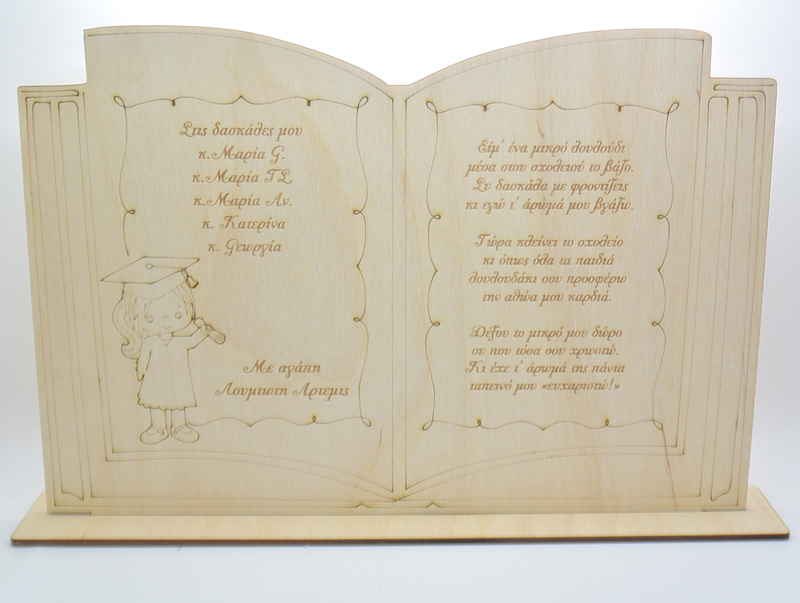 Στις δασκάλες μου
κ. Μαρία G.
κ. Μαρία ΤΣ
κ. Μαρία Αν.
κ. Κατερίνα
κ. Gεωργία
Με αγάπη
Λουμιωτη Αρτεμις
Είμ' ένα μικρό λουλούδι
μέσα στου σχολειού το βάζο.
Συ δασκάλα με φροντίζεις
κι εγώ τ' άρωμά μου βγάζω.
Τώρα κλείνει το σχολείο
κι όπως όλα τα παιδιά
λουλουδάκι σου προσφέρω
την αθώα μου καρδιά.
Δέξου το μικρό μου δώρο
συ που τόσα σου χρωστώ.
Κι έχε τ' άρωμά της πάντα
ταπεινό μου «ευχαριστώ!»